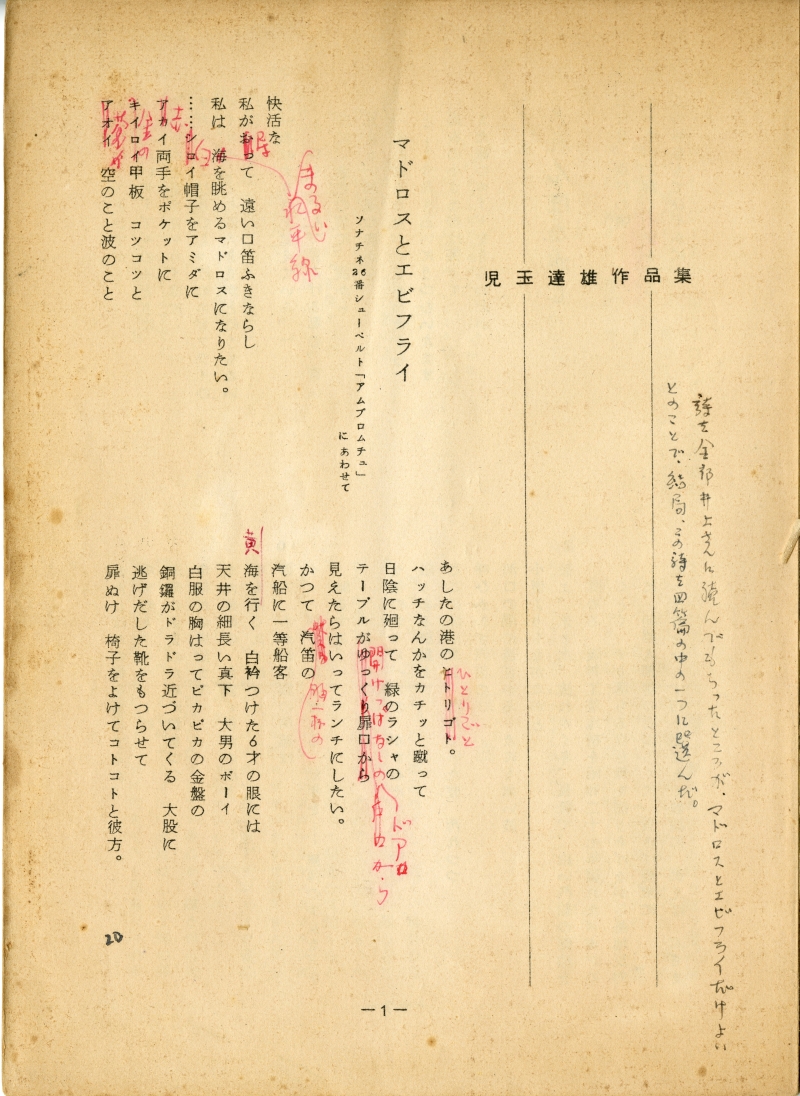 詩を全部井上さんに読んでもらったところが、マドロスとエビフライだけよい
とのことで、結局、この詩を四篇の中の一つに選んだ。
児玉達雄作品集
マドロスとエビフライ
ソナチネ26番シューベルト「アムプロムチュ」
にあわせて
快活な
私がおって 遠い口笛ふきならし
私は 海を眺めるマドロスになりたい。
……シロイ帽子をアミダに
アカイ両手をポケットに
キイロイ甲板 コツコツと
アオイ 空のこと波のこと
まるい
水平線
白
赤
あしたの港のヒトリゴト。
ひとりごと
ハッチなんかをカチッと蹴って
日陰に廻って 緑のラシャの
テーブルがゆっくり扉口から
開けっぱなしの
ドア口
から
見えたらはいってランチにしたい。
かつて 汽笛の
汽船に一等船客
黄
海を行く 白衿つけた6才の眼には
天井の細長い真下 大男のボーイ
白服の胸はってピカピカの金盤の
銅鑼がドラドラ近づいてくる 大股に
逃げだした靴をもつらせて
扉ぬけ 椅子をよけてコトコトと彼方。
20
—1—